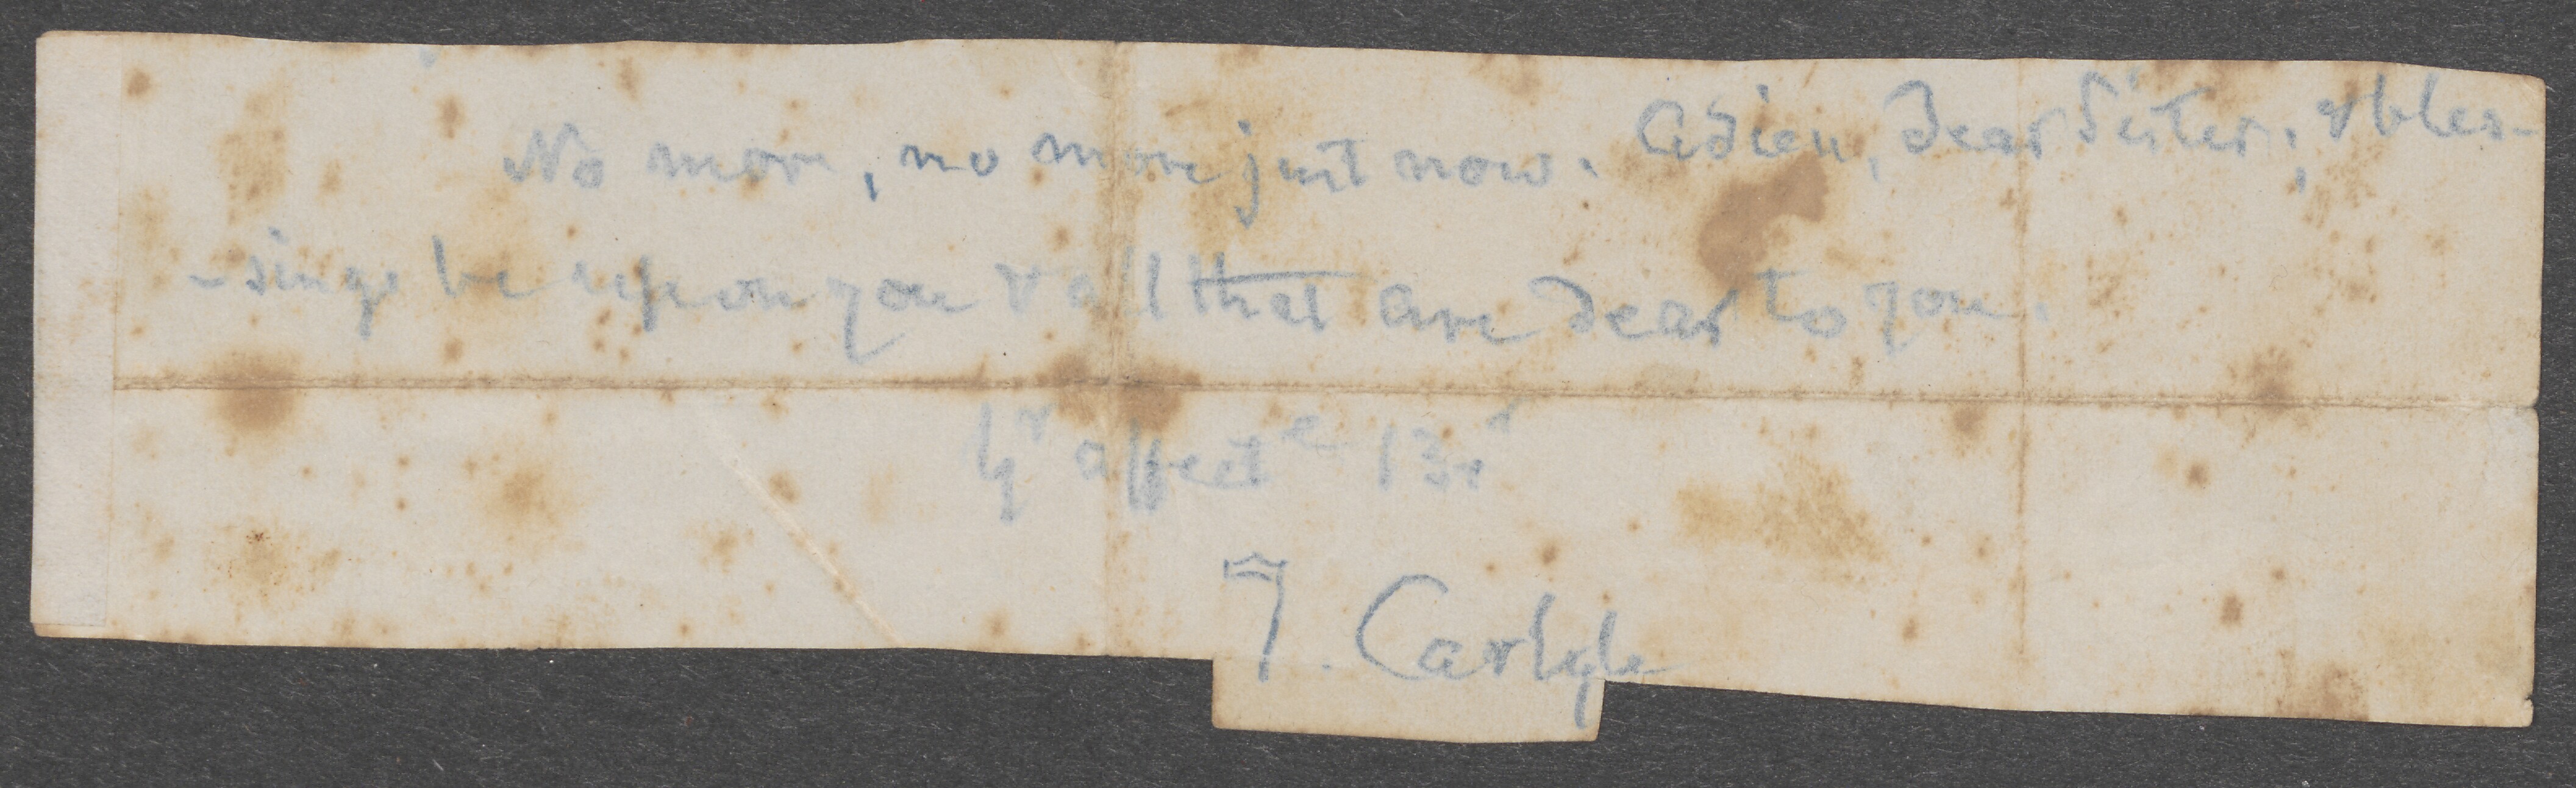 No more, no more just now. Adieu, dear Sister; & bles-
-sings be upon you & all that are dear to you.
Yr affecte Br
T. Carlyle